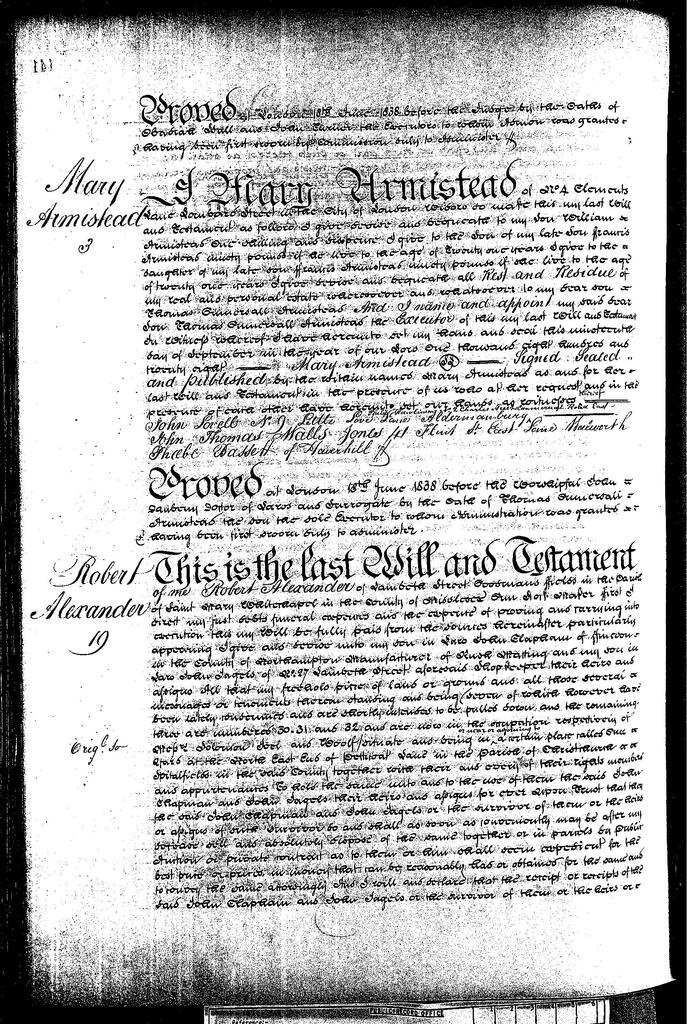 Proved at London 18th June 1838 before the Judge by the Oaths of
Obadiah Hall and John Turner the Executors to whom Admon was granted
having been first sworn by Commission duly to Administer
Mary
Armistead
3
I Mary Armistead of No 4 Clements
Lane Lombard Street in the City of London Widow do make this my last Will
and Testament as follows I give devise and bequeath to my Son William
Armistead One Shilling and Sixpence I give to the Son of my late Son Francis
Armistead ninety pounds if he live to the age of Twenty one years I give to the
daughter of my late son Francis Armistead ninety pounds if she live to the age
of twenty one years I give devise and bequeath all Rest and Residue of
my real and personal Estate wheresoever and whatsoever to my dear son
Thomas Armistead And I name and appoint my said dear
Son Thomas Armistead the Executor of this my last Will and Testament
In Witness whereof I have hereunto set my hand and seal this nineteenth
day of September in the year of our Lord One thousand eight hundred and
twenty eight — Mary Armistead — Signed Sealed
and published by the within named Mary Armistead as and for her
last Will and Testament in the presence of us who at her request and in the
presence of each other have hereunto set our hands as witnesses
John Lovell N. 9 Little Love Lane Aldermanbury
John Thomas Walls Jones 41 Flint St East Lane Walworth
Phoebe Bassett of Haverhill
Proved at London 18th June 1838 before the Worshipful John
Daubeny Doctor of Laws and Surrogate by the Oath of Thomas
Armistead the Son the sole Executor to whom Administration was granted
having been first sworn duly to administer
Robert
Alexander
19
This is the last Will and Testament
of me Robert Alexander of Lambeth Street Goodmans ffields in the Parish
of Saint Mary Whitechapel in the County of Middlesex Gun Lock Maker First I
direct my just debts funeral expences and the expence of proving and carrying into
execution this my Will be fully paid from the sources hereinafter particularly
appearing I give and devise unto my son in Law John Clapham of
in the County of Northampton Manufacturer of Rush Matting and my son in
Law John Jagels of No 27 Lambeth Street aforesaid Shopkeeper their heirs and
assigns All that my freehold piece of land or ground and all those several
messuages or tenements thereon standing and being seven of which however have
been lately and are shortly intended to be pulled down and the remaining
three are numbered 30. 31 and 32 and are now in the occupation respectively of
Messrs Solomon Joel and Woolf situate and being in a certain place called
Yard at the North East End of Petticoat Lane in the Parish of Christchurch
Origl. So
Spitalfields in the said County together with their and every of their rights members
and appurtenances To hold the same unto and to the use of them the said John
Clapham and John Jagels their heirs and assigns for ever Upon Trust that they
the said John Clapham and John Jagels or the survivor of them or the heirs
or assigns of such Survivor do and shall as soon as conveniently may be after my
decease sell and absolutely dispose of the same together or in parcels by public
Auction or private contract as to them or him shall seem expedient for the
best price or prices in money that can be reasonably had or obtained for the same and
to convey the same accordingly And I will and declare that the receipt or receipts of the
said John Clapham and John Jagels or the survivor of them or the heirs or
PUBLIC RECORD OFFICE
Reference:-